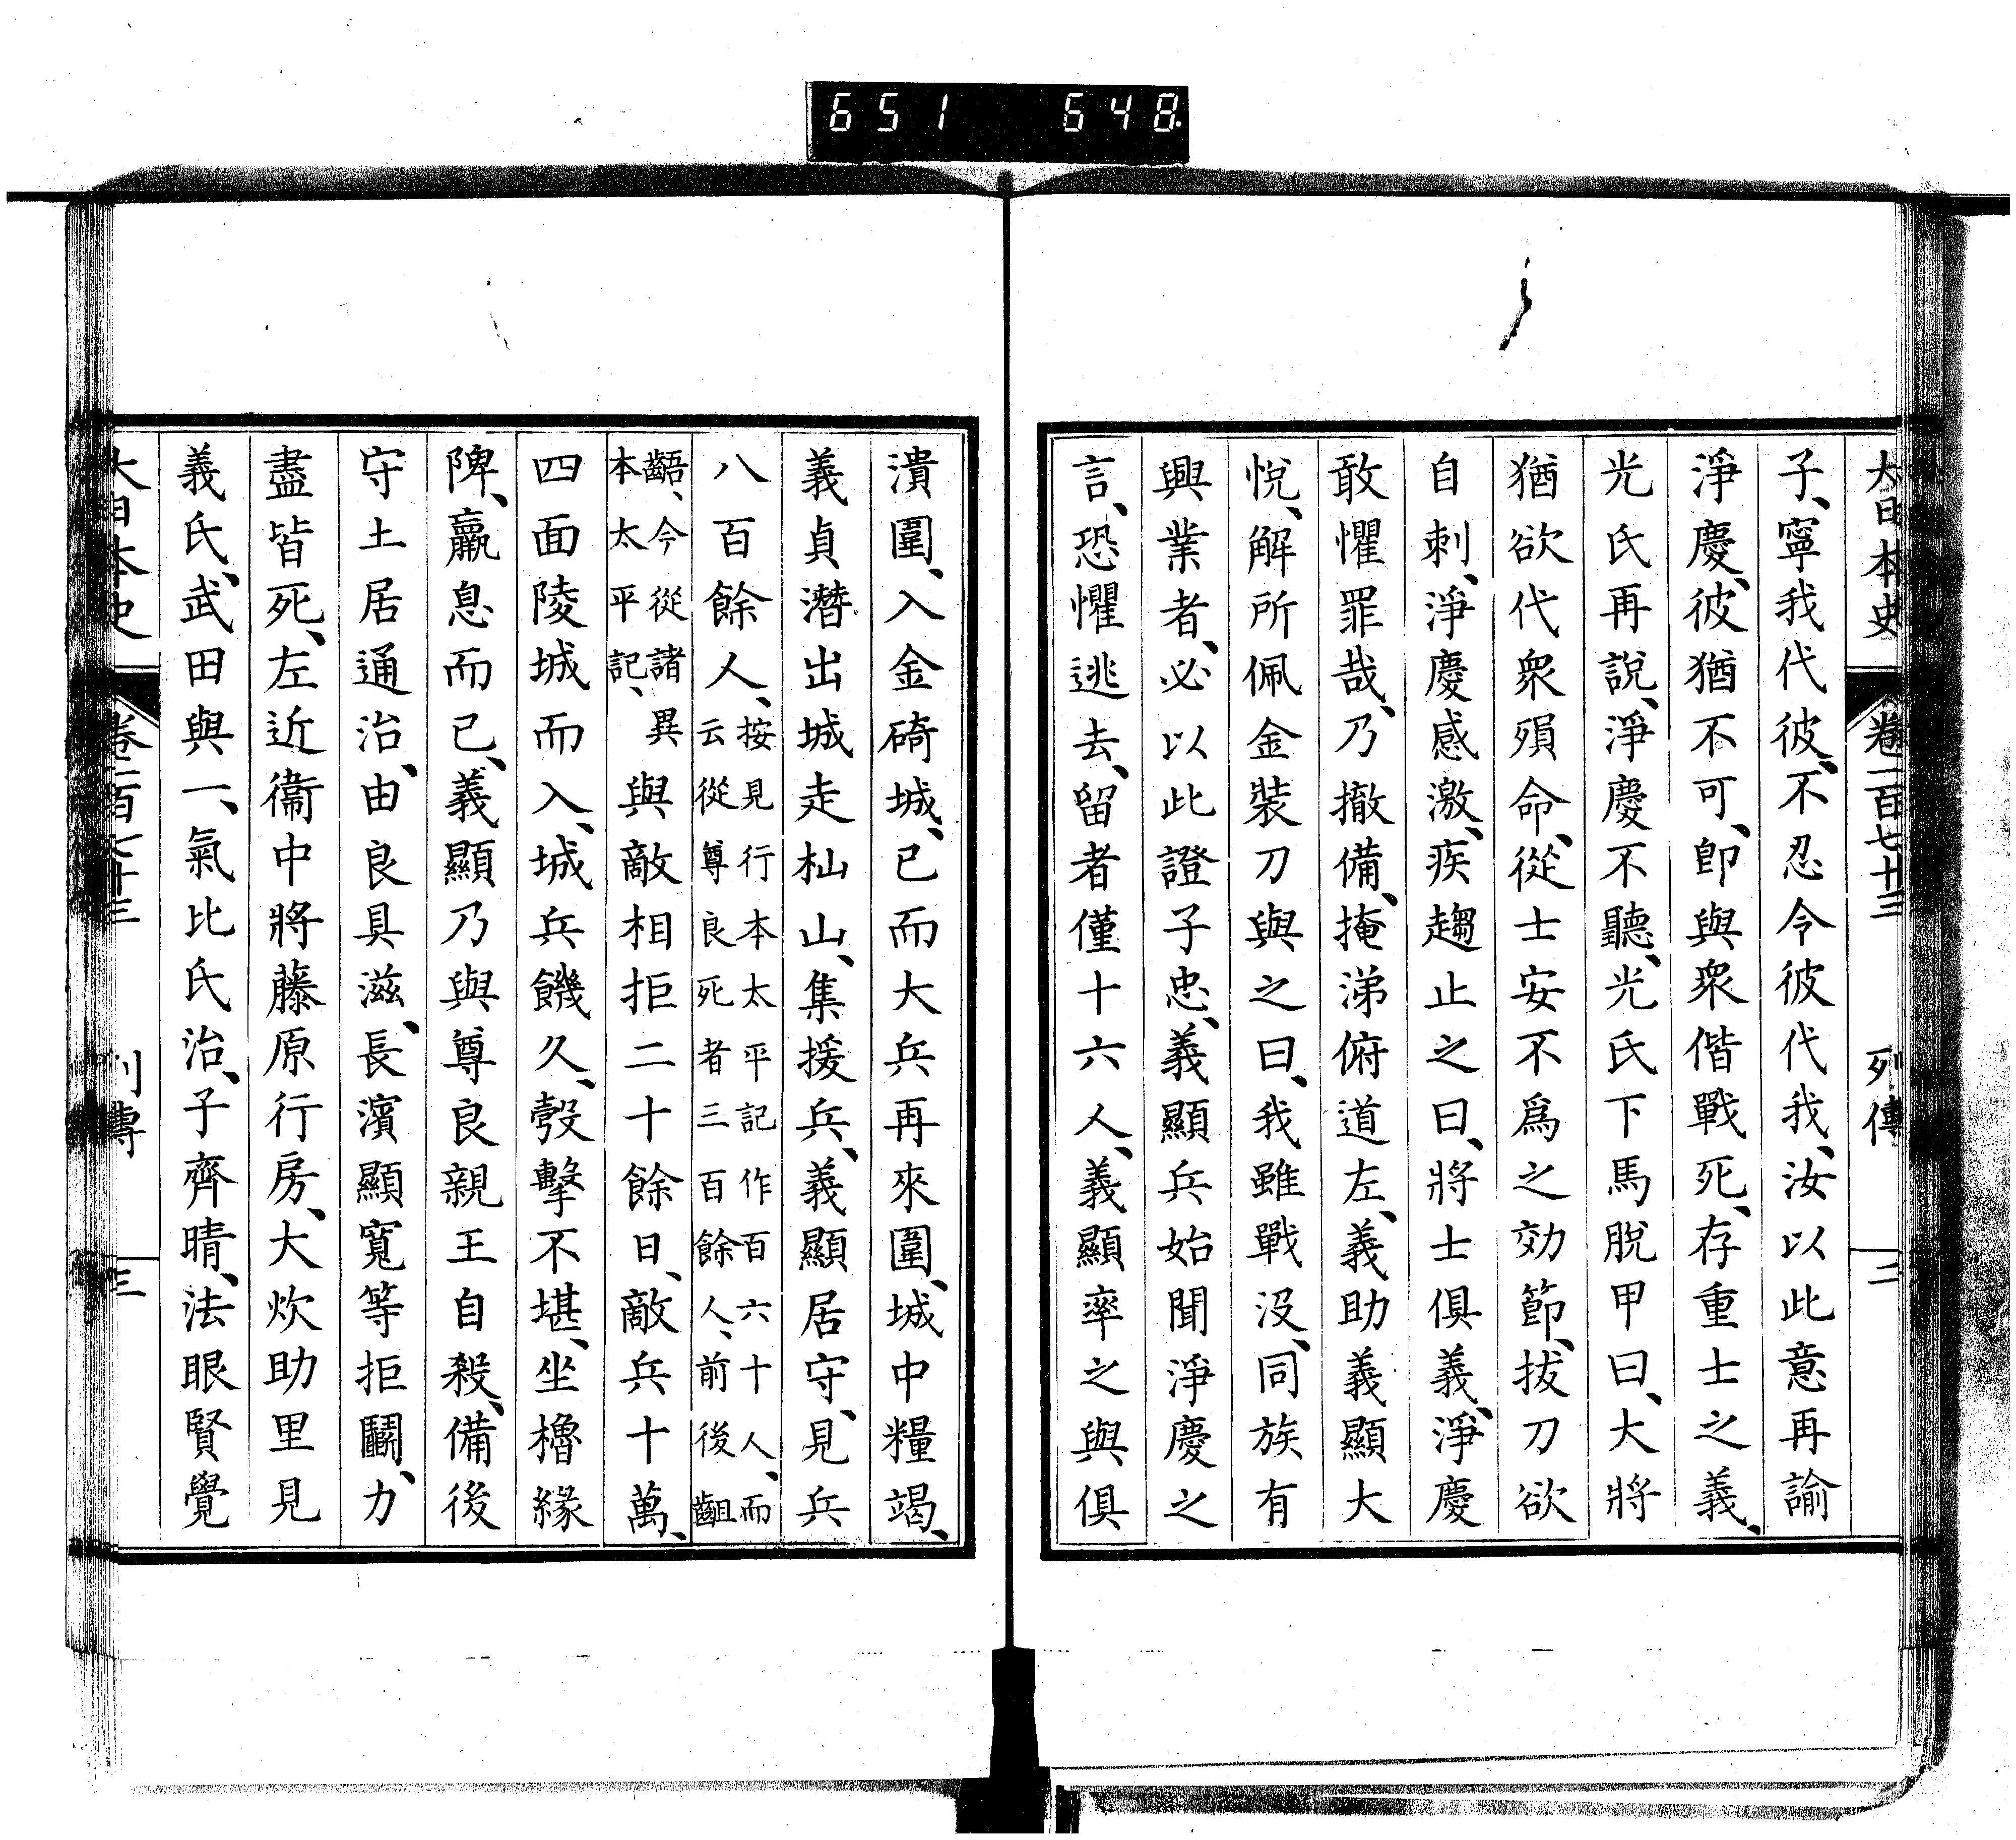 651 648
大日本史 卷一百七十三 列傳 二
子、寧我代彼、不忍今彼代我、汝以此意再諭
淨慶、彼猶不可、卽與衆偕戰死、存重士之義、
光氏再說、淨慶不聽、光氏下馬脫甲曰、大將
猶欲代衆殞命、從士安不爲之効節、拔刀欲
自刺、淨慶感激、疾趨止之曰、將士俱義、淨慶
敢懼罪哉、乃撤備、掩涕俯道左、義助義顯大
悅、解所佩金裝刀與之曰、我雖戰沒、同族有
興業者、必以此證子忠、義顯兵始聞淨慶之
言、恐懼逃去、留者僅十六人、義顯率之與俱
潰圍、入金碕城、已而大兵再來圍、城中糧竭、
義貞潛出城走杣山、集援兵、義顯居守、見兵
八百餘人、按見行本太平記作百六十人、而
云從尊良死者三百餘人、前後齟
齬、今從諸異
本太平記、與敵相拒二十餘日、敵兵十萬、
四面陵城而入、城兵饑久、彀擊不堪、坐櫓緣
陴、羸息而已、義顯乃與尊良親王自殺、備後
守土居通治、由良具滋、長濱顯寬等拒鬭、力
盡皆死、左近衞中將藤原行房、大炊助里見
義氏、武田與一、氣比氏治、子齊晴、法眼賢覺
大日本史 卷一百七十三 列傳 三